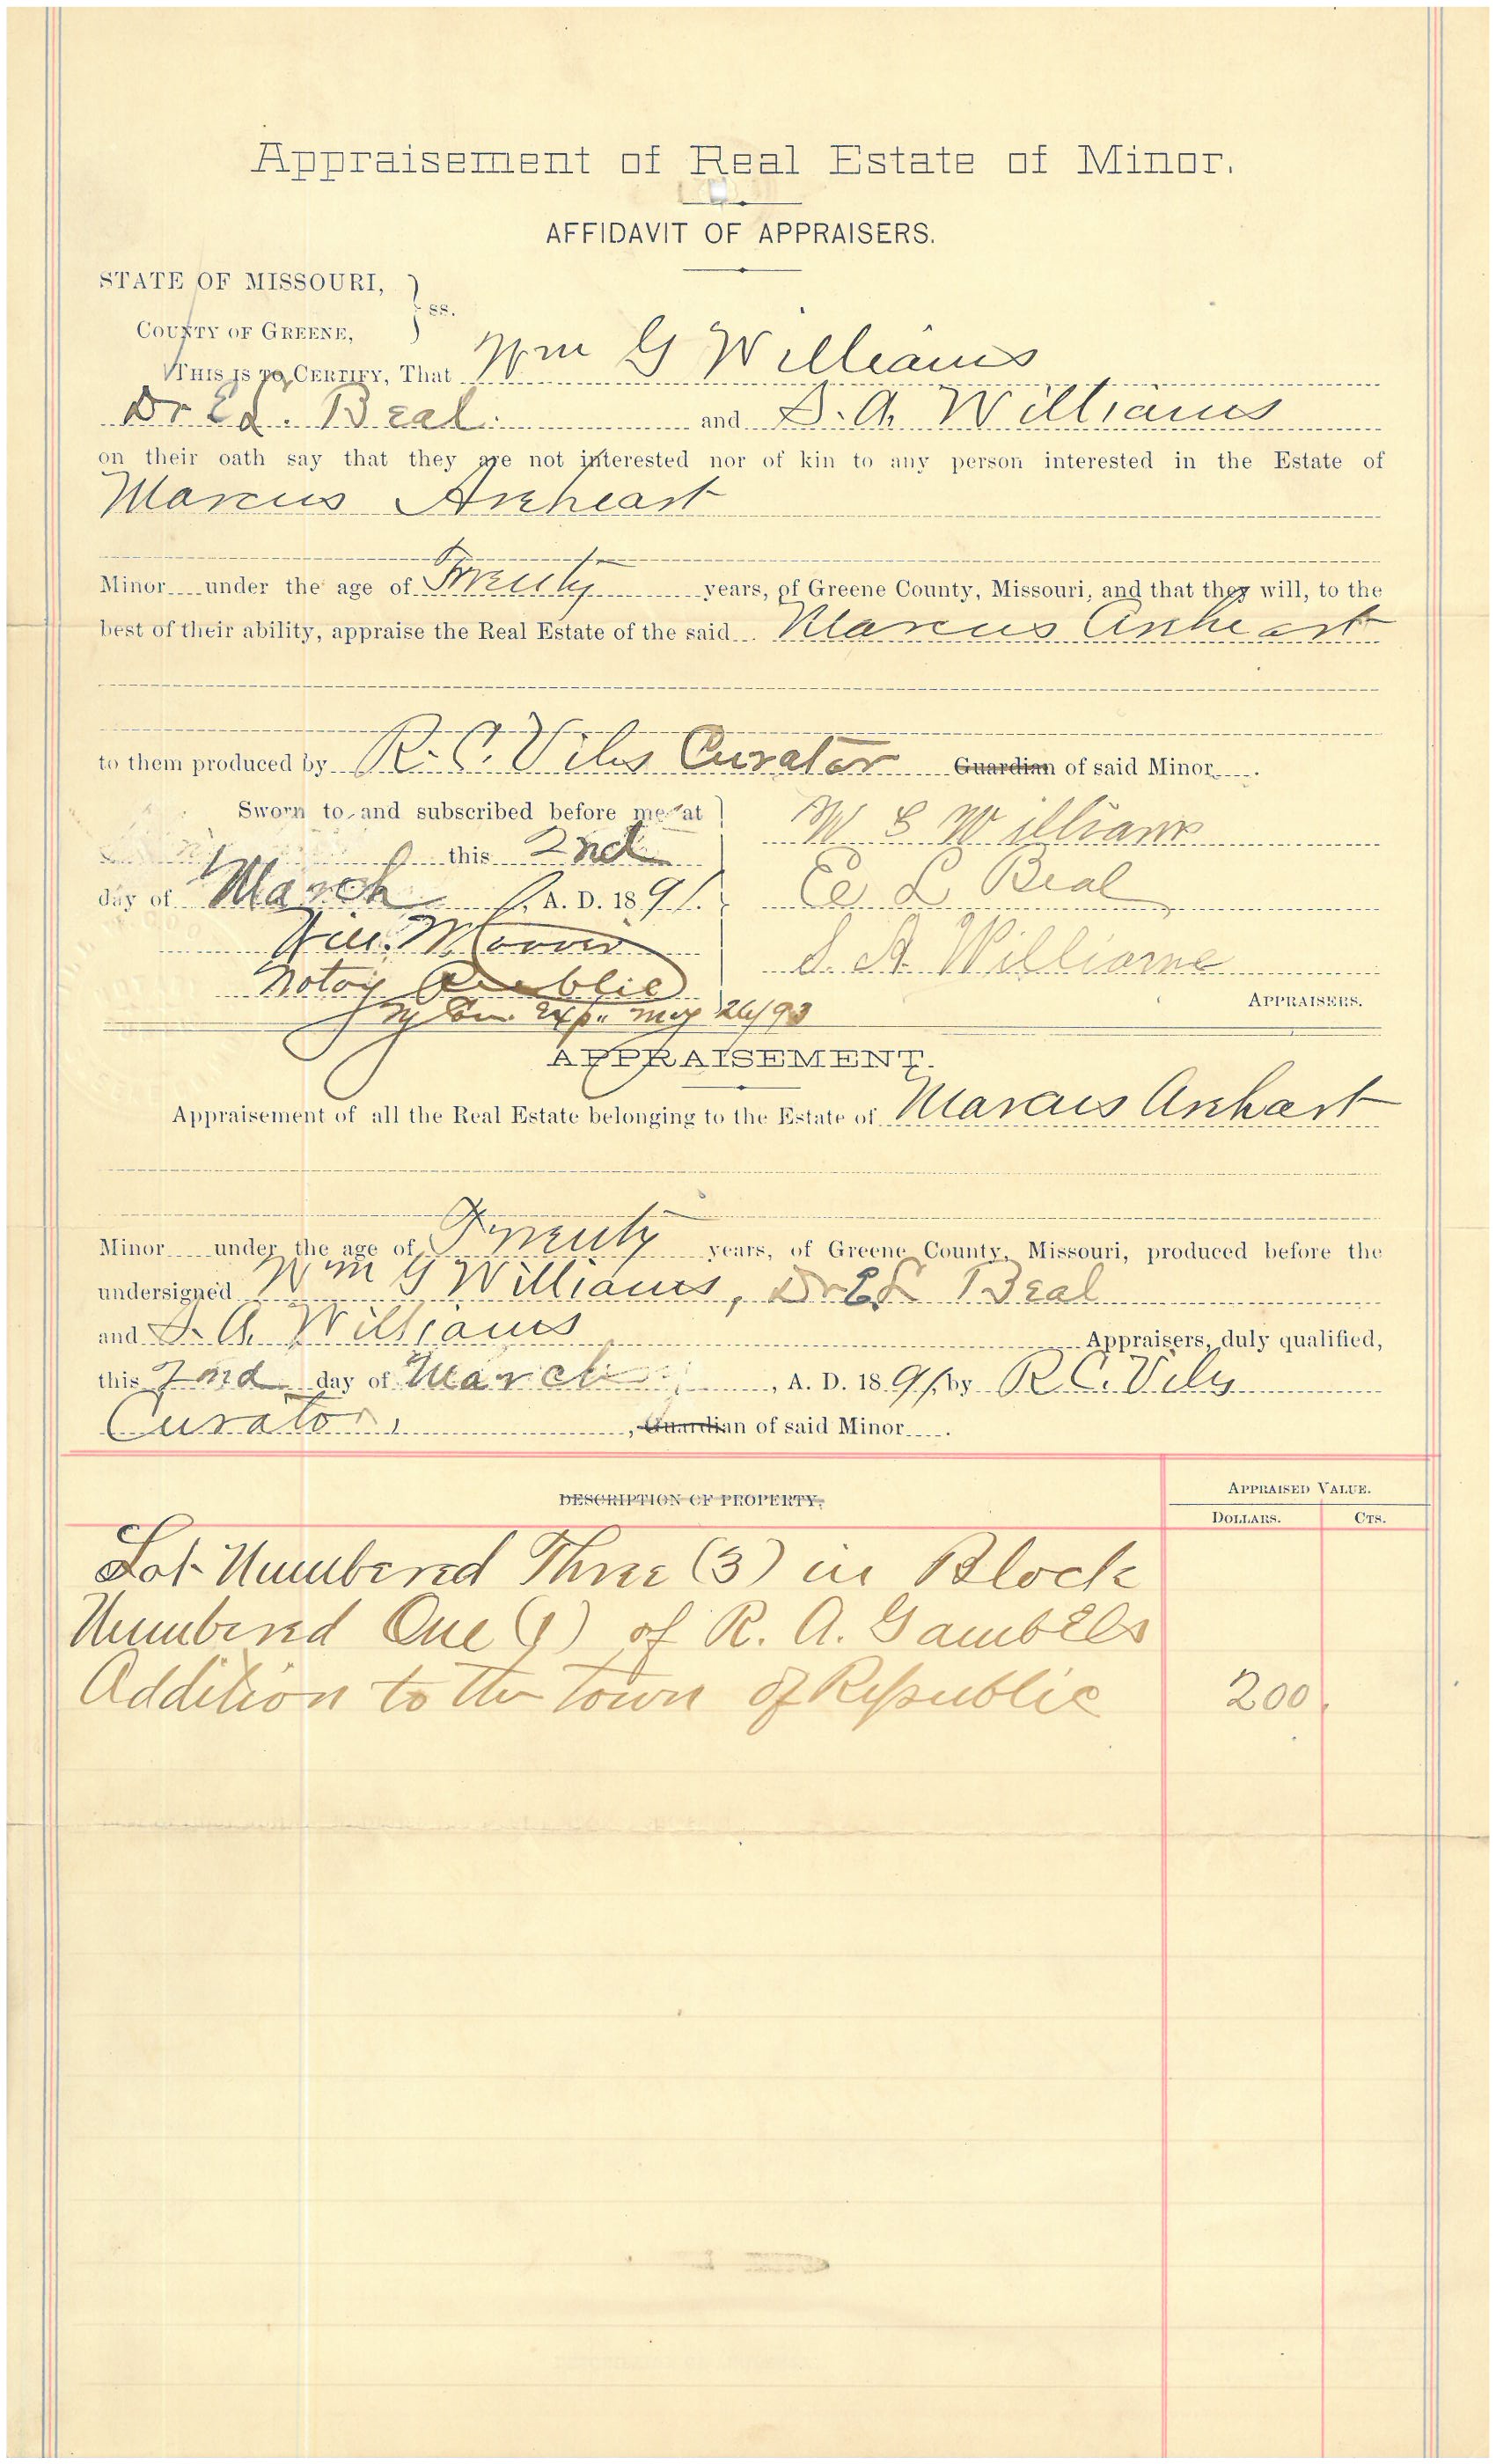 Appraisement of Real Estate of Minor.
AFFIDAVIT OF APPRAISERS.
STATE OF MISSOURI,
ss.
COUNTY OF GREENE,
THIS IS TO CERTIFY, That Wm G Williams
Dr E L. Beal. and S. A. Williams
on their oath say that they are not interested nor of kin to any person interested in the Estate of
Marcus Arehart
Minor under the age of Twenty years, of Greene County, Missouri, and that they will, to the
best of their ability, appraise the Real Estate of the said Marcus Arehart
to them produced by R. C. Viles Curator Guardian of said Minor.
Sworn to and subscribed before me at
this 2nd
day of March, A. D. 1891.
Notary Public
My Com. Exp. May 26/93
W G Williams
E L Beal
S. A. Williams
APPRAISERS.
APPRAISEMENT.
Appraisement of all the Real Estate belonging to the Estate of Marcus Arehart
Minor under the age of Twenty years, of Greene County, Missouri, produced before the
undersigned Wm G Williams, Dr E L Beal
and S. A. Williams Appraisers, duly qualified,
this 2nd day of March, A. D. 1891, by R C. Viles
Curator, , Guardian of said Minor.
DESCRIPTION OF PROPERTY.
APPRAISED VALUE.
DOLLARS. CTS.
Lot Numbered Three (3) in Block
Numbered One (1) of R. A. Gambels
Addition to the Town of Republic 200.